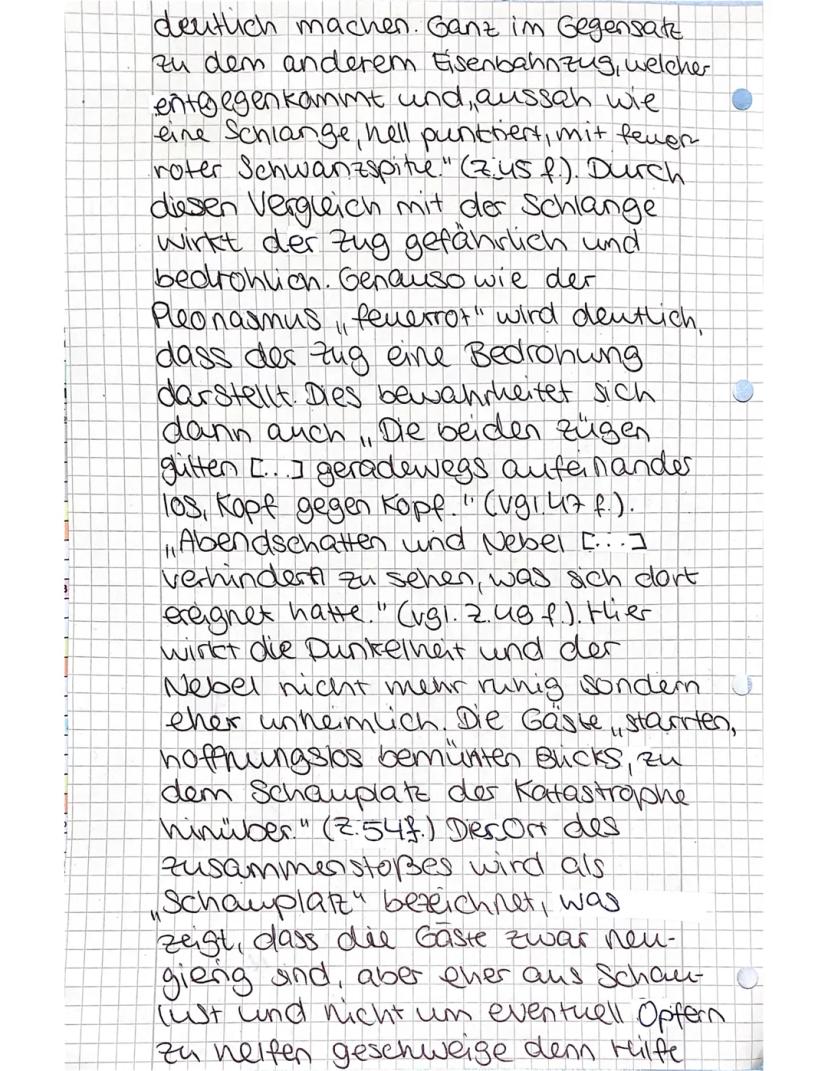 deutlich machen. Ganz im Gegensatz
zu dem anderem Eisenbahnzug, welcher
entgegenkommt und „aussah wie
eine Schlange, hell punktiert, mit feuer
roter Schwanzspitze." (Z.45 f.). Durch
diesen Vergleich mit der Schlange
wirkt der Zug gefährlich und
bedrohlich. Genauso wie der
Pleonasmus „feuerrot" wird deutlich,
dass der Zug eine Bedrohung
darstellt. Dies bewahrheitet sich
dann auch „Die beiden zügen
glitten [...] geradewegs aufeinander
los, Kopf gegen Kopf." (vgl.47 f.).
„Abendschatten und Nebel [...]
verhindern zu sehen, was sich dort
ereignet hatte." (vgl. Z.49 f.). Hier
wirkt die Dunkelheit und der
Nebel nicht mehr ruhig sondern
eher unheimlich. Die Gäste „starrten,
hoffnungslos bemühten Blicks, zu
dem Schauplatz der Katastrophe
hinüber." (Z.54f.) Der Ort des
zusammenstoßes wird als
„Schauplatz" bezeichnet, was
zeigt, dass die Gäste zwar neu-
gierig sind, aber eher aus Schau-
lust und nicht um eventuell Opfern
zu helfen geschweige denn Hilfe